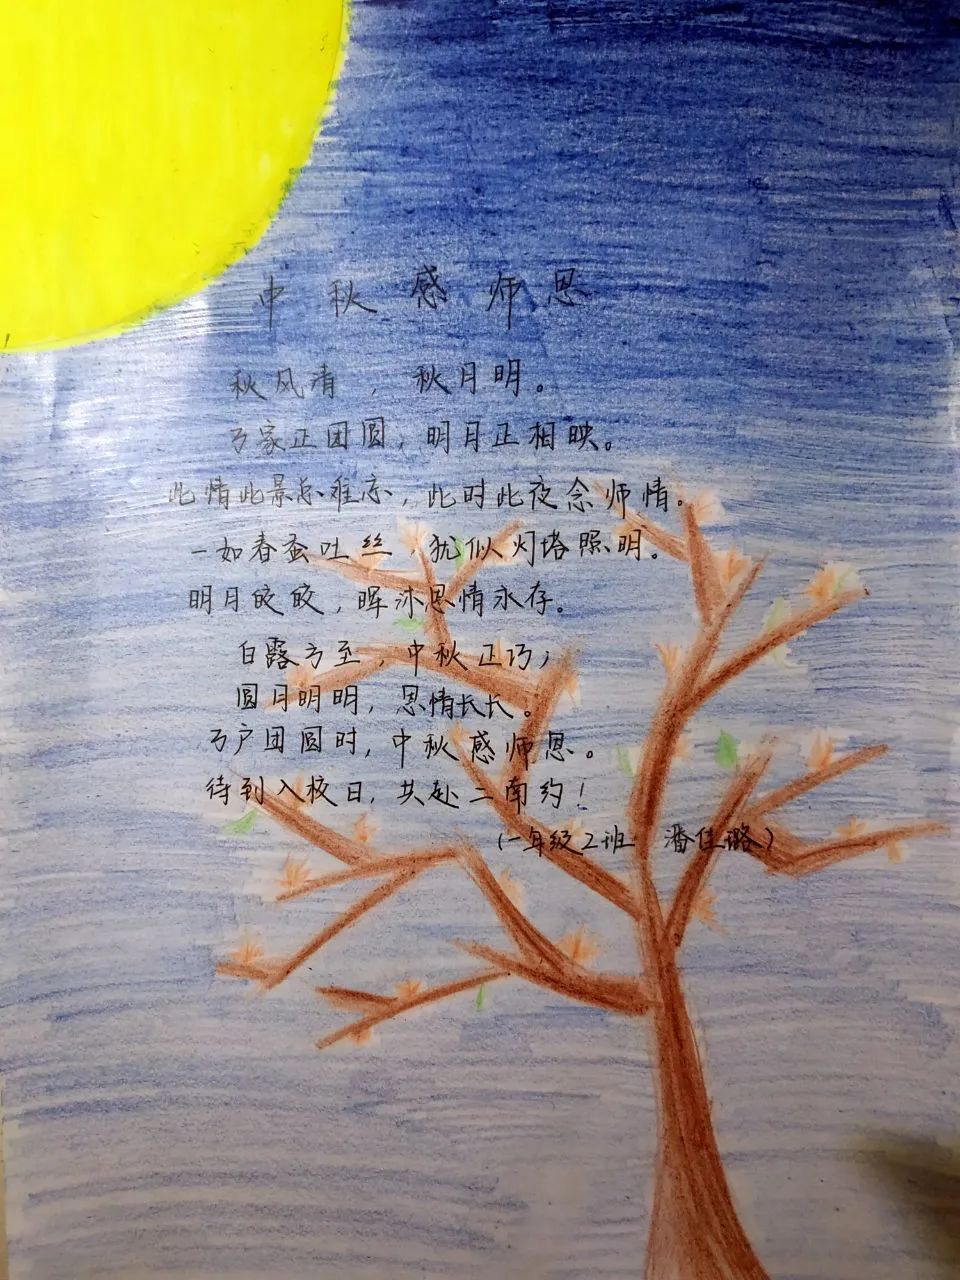 中秋感师恩
秋风清，秋月明。
万家正团圆，明月正相映。
此情此景总难忘，此时此夜念师情。
一如春蚕吐丝，犹似灯塔照明。
明月皎皎，晖沐恩情永存。
白露方至，中秋正巧；
圆月明明，恩情长长。
万户团圆时，中秋感师恩。
待到入校日，共赴二南约！
（一年级2班 潘佳璐）